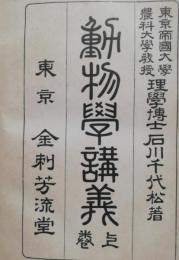 東京帝國大學
農科大學教授
理學博士石川千代松著
動物學講義
上卷
東京 金刺芳流堂